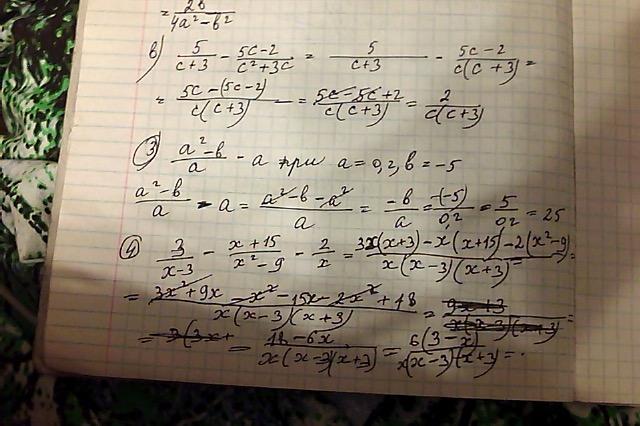 = 2b / 4a² - b²
b) 5/(c+3) - (5c-2)/(c²+3c) = 5/(c+3) - (5c-2)/(c(c+3)) =
= (5c-(5c-2))/(c(c+3)) = (5c-5c+2)/(c(c+3)) = 2/(c(c+3))
③ (a²-b)/a - a при a=0,2, b=-5
(a²-b)/a - a = (a²-b-a²)/a = -b/a = -(-5)/0,2 = 5/0,2 = 25
④ 3/(x-3) - (x+15)/(x²-9) - 2/x = (3x(x+3)-x(x+15)-2(x²-9))/(x(x-3)(x+3)) =
= (3x²+9x-x²-15x-2x²+18)/(x(x-3)(x+3)) = (9x+3)/(x(x-3)(x+3)) =
= (18-6x)/(x(x-3)(x+3)) = 6(3-x)/(x(x-3)(x+3)) =